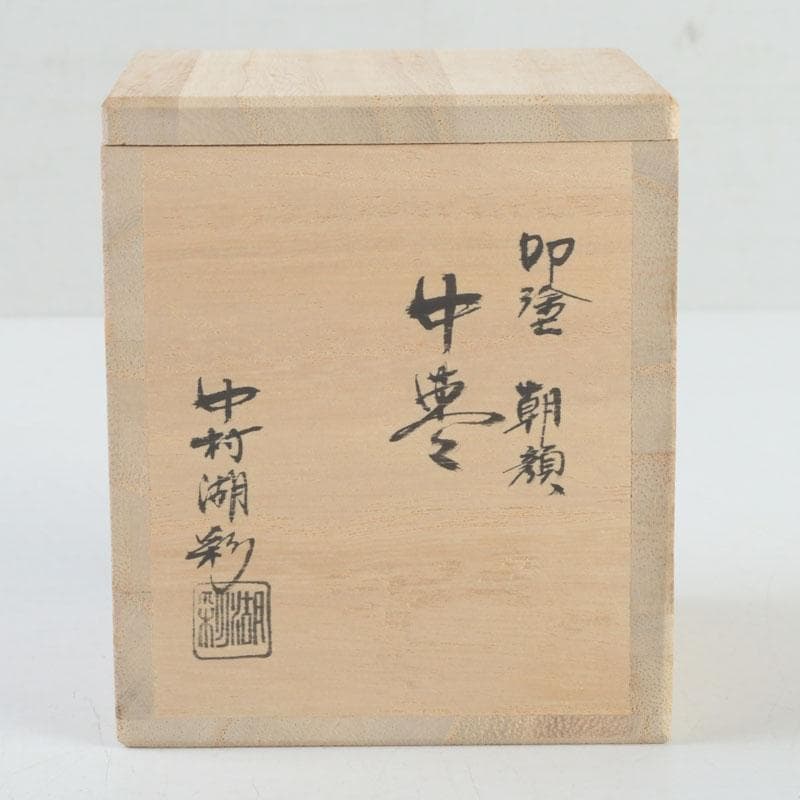 叩塗 朝顔
中棗
中村湖彩
湖彩